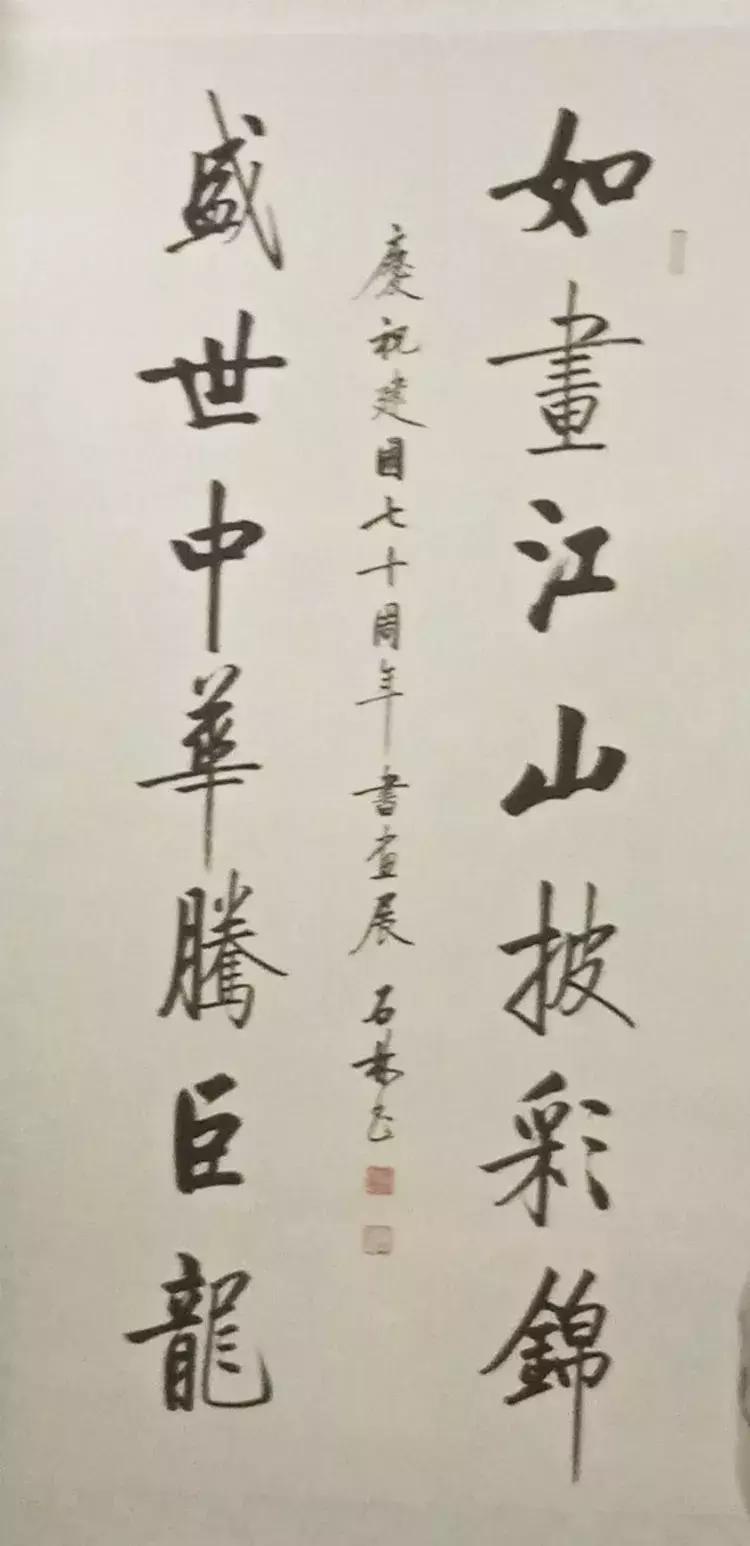 如畫江山披彩錦
慶祝建國七十周年書畫展 石林書
盛世中華騰巨龍